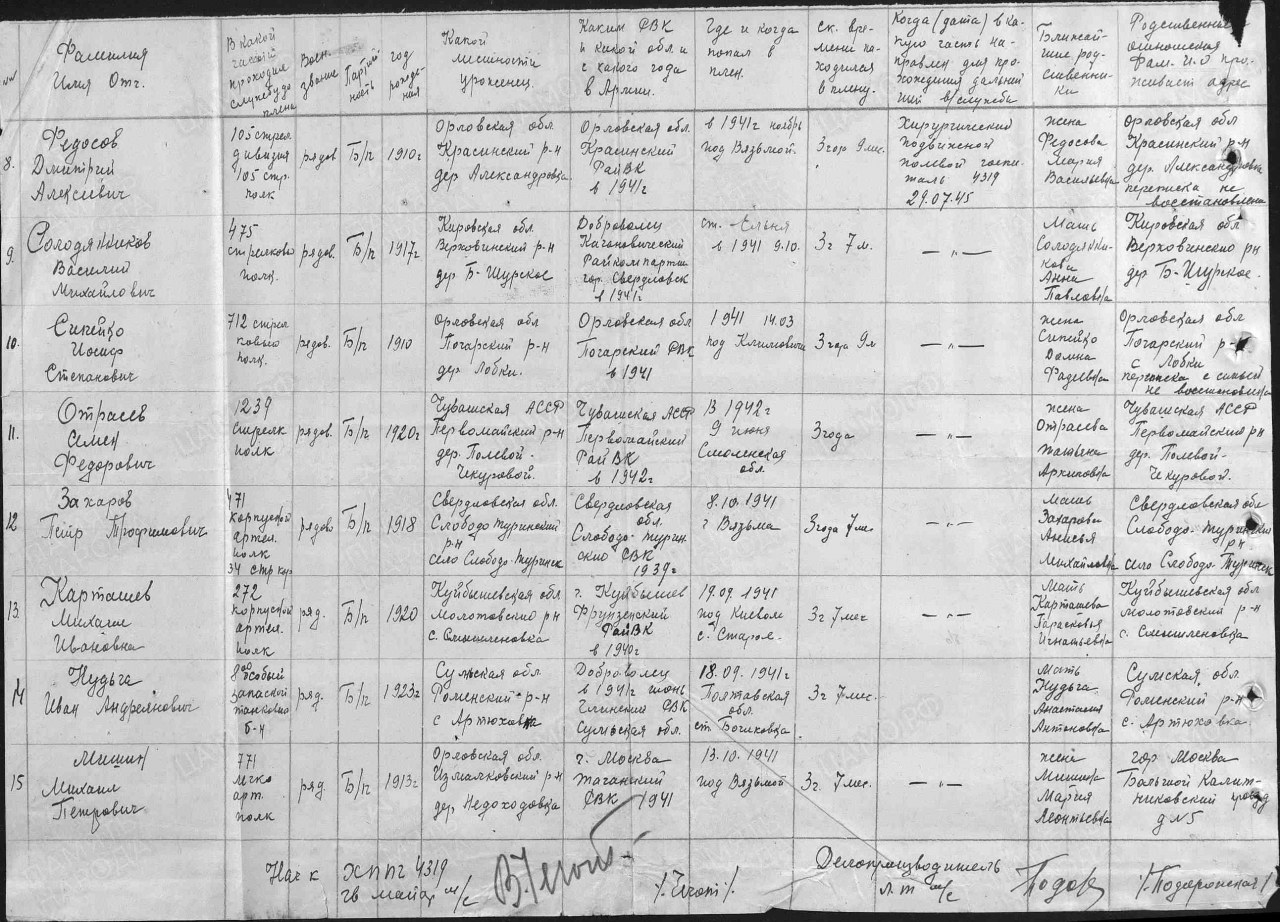 №№
Фамилия
Имя Отч.
В какой
частой
проходил
службу до
плена
Воен.
звание
Партий
ность
год
рожде-
ния
Какой
местности
уроженец
Каким РВК
и какой обл. и
с какого года
в Армии.
Где и когда
попал в
плен.
ск. вре-
мени на-
ходился
в плену.
Когда (дата) в ка-
кую часть на-
правлен для про-
хождения дальней
ший в/службы
Ближай-
шие род-
ственни-
ки
Родственные
отношения
Фам. И.О про-
живает адрес
8.
Федосов
Дмитрий
Алексеевич
105 стрел
дивизия
105 стр.
полк
рядов
Б/п
1910г
Орловская обл.
Красинский р-н
дер Александровка
Орловская обл.
Красинский
РайВК
в 1941г
в 1941г ноябрь
под Вязьмой.
3 год 9 мес.
Хирургический
подвижной
полевой госпи-
таль 4319
29.07.45
жена
Федосова
Мария
Васильевна
Орловская обл
Красинский р-н
дер. Александровка
переписка не
восстановлена
9.
Солодянников
Василий
Михайлович
475
стрелковы
полк.
рядов.
Б/п
1917г
Кировская обл.
Верховинский р-н
дер Б-Щурское
Доброволец
Каганович­еский
Райком партии
гор. Свердловск
в 1941г
ст. Ельня
в 1941 9.10.
3г 7м.
— „ —
Мать
Солодянни-
кова
Анна
Павловна
Кировская обл
Верховинского рн
дер Б-Щурское.
10.
Сипейко
Иосиф
Степанович
712 стрел
ковый
полк.
рядов.
Б/п
1910
Орловская обл
Погарский р-н
дер. Лобки.
Орловская обл
Погарский РВК
в 1941
1941 14.03
под Климовичи
3 года 9м
— „ —
жена
Сипейко
Домна
Фадеевна
Орловская обл
Погарский р-н
с Лобки
переписка с семьей
не восстановлена
11.
Отрасев
Семен
Федорович
1239
стрелк
полк
рядов.
Б/п
1920г
Чувашская АССР
Первомайский р-н
дер. Полевой-
Чекуровой.
Чувашская АССР
Первомайский
РайВК
в 1942г
В 1942г
9 июня
Смоленская
обл.
3 года
— „ —
жена
Отрасева
Татьяна
Архиповна
Чувашская АССР
Первомайский рн
дер. Полевой-
Чекуровой.
12
Захаров
Пётр Трофимович
471
корпусной
артел.
полк
34 стр кор
рядов
Б/п
1918
Свердловская обл.
Слободо Туринский
р-н
село Слободо-Туринск
Свердловская
обл.
Слободо-Турин
ский РВК
1939г
8.10.1941
г Вязьма
3 года 7 мес
— „ —
мать
Захарова
Анисья
Михайловна
Свердловская обл
Слободо-Туринский
рн
село Слободо-Туринск
13.
Карташев
Михаил
Ивановна
272
корпусной
артел.
полк
ряд.
Б/п
1920
Куйбышевская обл
Молотовский р-н
с. Смышляевка
г. Куйбышев
Фрунзенский
РайВК
в 1940г
19.09.1941
под Киевом
с. Старое.
3г 7 мес
— „ —
Мать
Карташева
Парасковья
Игнатьевна
Куйбышевская обл
Молотовский р-н
с. Смышляевка
14
Нудьга
Иван Андреянович
8ой особый
запасной
танковый
б-н
ряд.
Б/п
1923г
Сумская обл.
Роменский р-н
с Артюховка
Доброволец
в 1941г июнь
Глинский РВК
Сумская обл.
18.09.1941г
Полтавская
обл.
ст. Богиковка
3г 7 мес.
Мать
Нудьга
Анастасия
Антоновна
Сумская обл.
Роменский р-н
с. Артюховка.
15
Мишин
Михаил
Петрович
771
легко
арт.
полк
ряд
Б/п
1913г
Орловская обл.
Измалковский р-н
дер. Недоходовка
г. Москва
Таганский
РВК 1941
13.10.1941
под Вязьмой
3г. 7 мес.
— „ —
жена
Мишина
Мария
Леонтьевна
гор Москва
Большой Калит-
никовский проезд
д №5
Нач-к ХППГ 4319
гв майор м/с
Делопроизводитель
л-т м/с